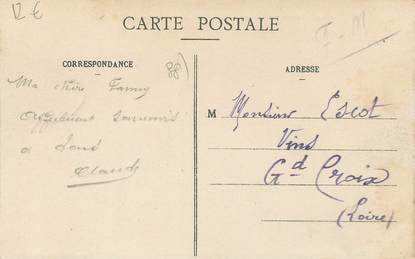 12 €
F-M
CARTE POSTALE
CORRESPONDANCE
88)
ADRESSE
Ma chère Fanny
Affectueux Souvenirs
a tous
Claude
M Monsieur Escot
Vins
Gd Croix
(Loire)